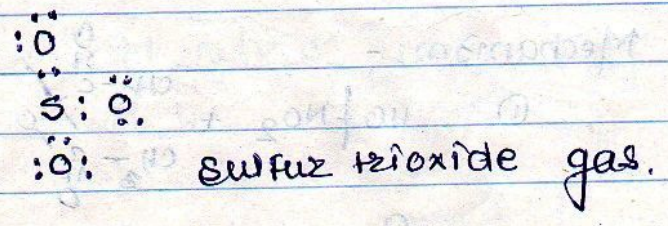 :Ö
S̈ : Ö.
:Ö: sulfur trioxide gas.